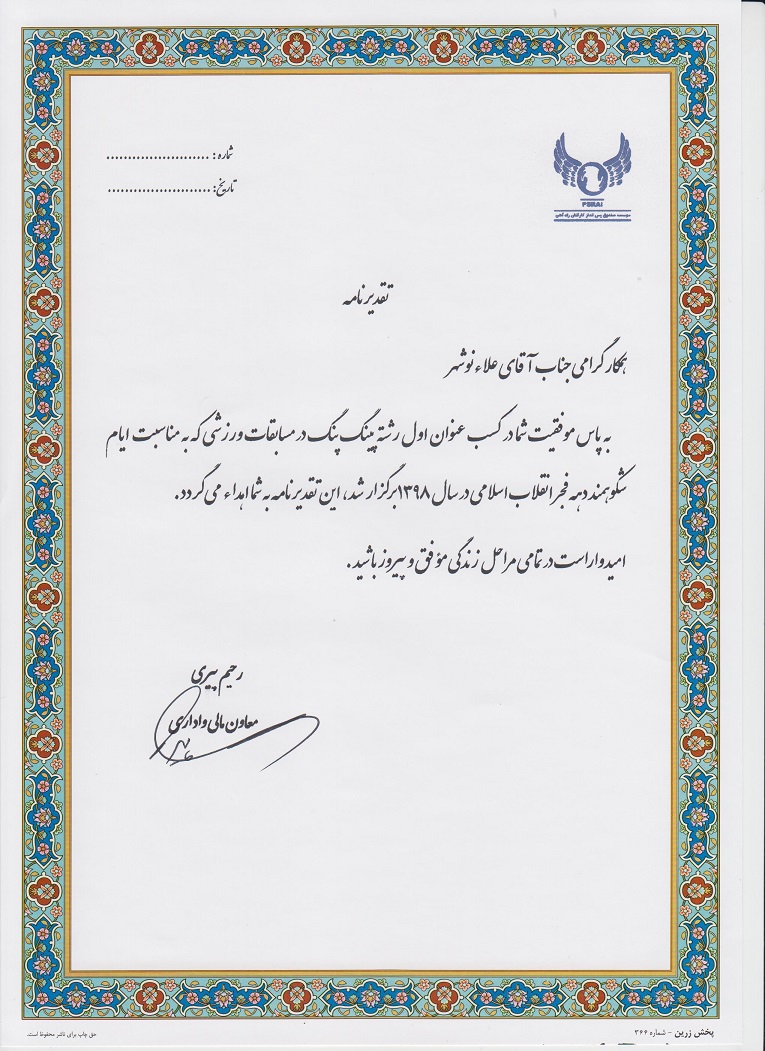 شماره : ........................
تاریخ: ........................
PSRAI
موسسه صندوق پس انداز کارکنان راه آهن
تقدیرنامه
همکار گرامی جناب آقای علاء نوشهر
به پاس موفقیت شما در کسب عنوان اول رشته پینگ پنگ در مسابقات ورزشی که به مناسبت ایام
شکوهمند دهه فجر انقلاب اسلامی در سال ۱۳۹۸ برگزار شد، این تقدیرنامه به شما اهداء می گردد.
امیدوار است در تمامی مراحل زندگی مؤفق و پیروز باشید.
رحیم پیری
معاون مالی و اداری
پخش زرین - شماره ۳۶۶
حق چاپ برای ناشر محفوظ است.